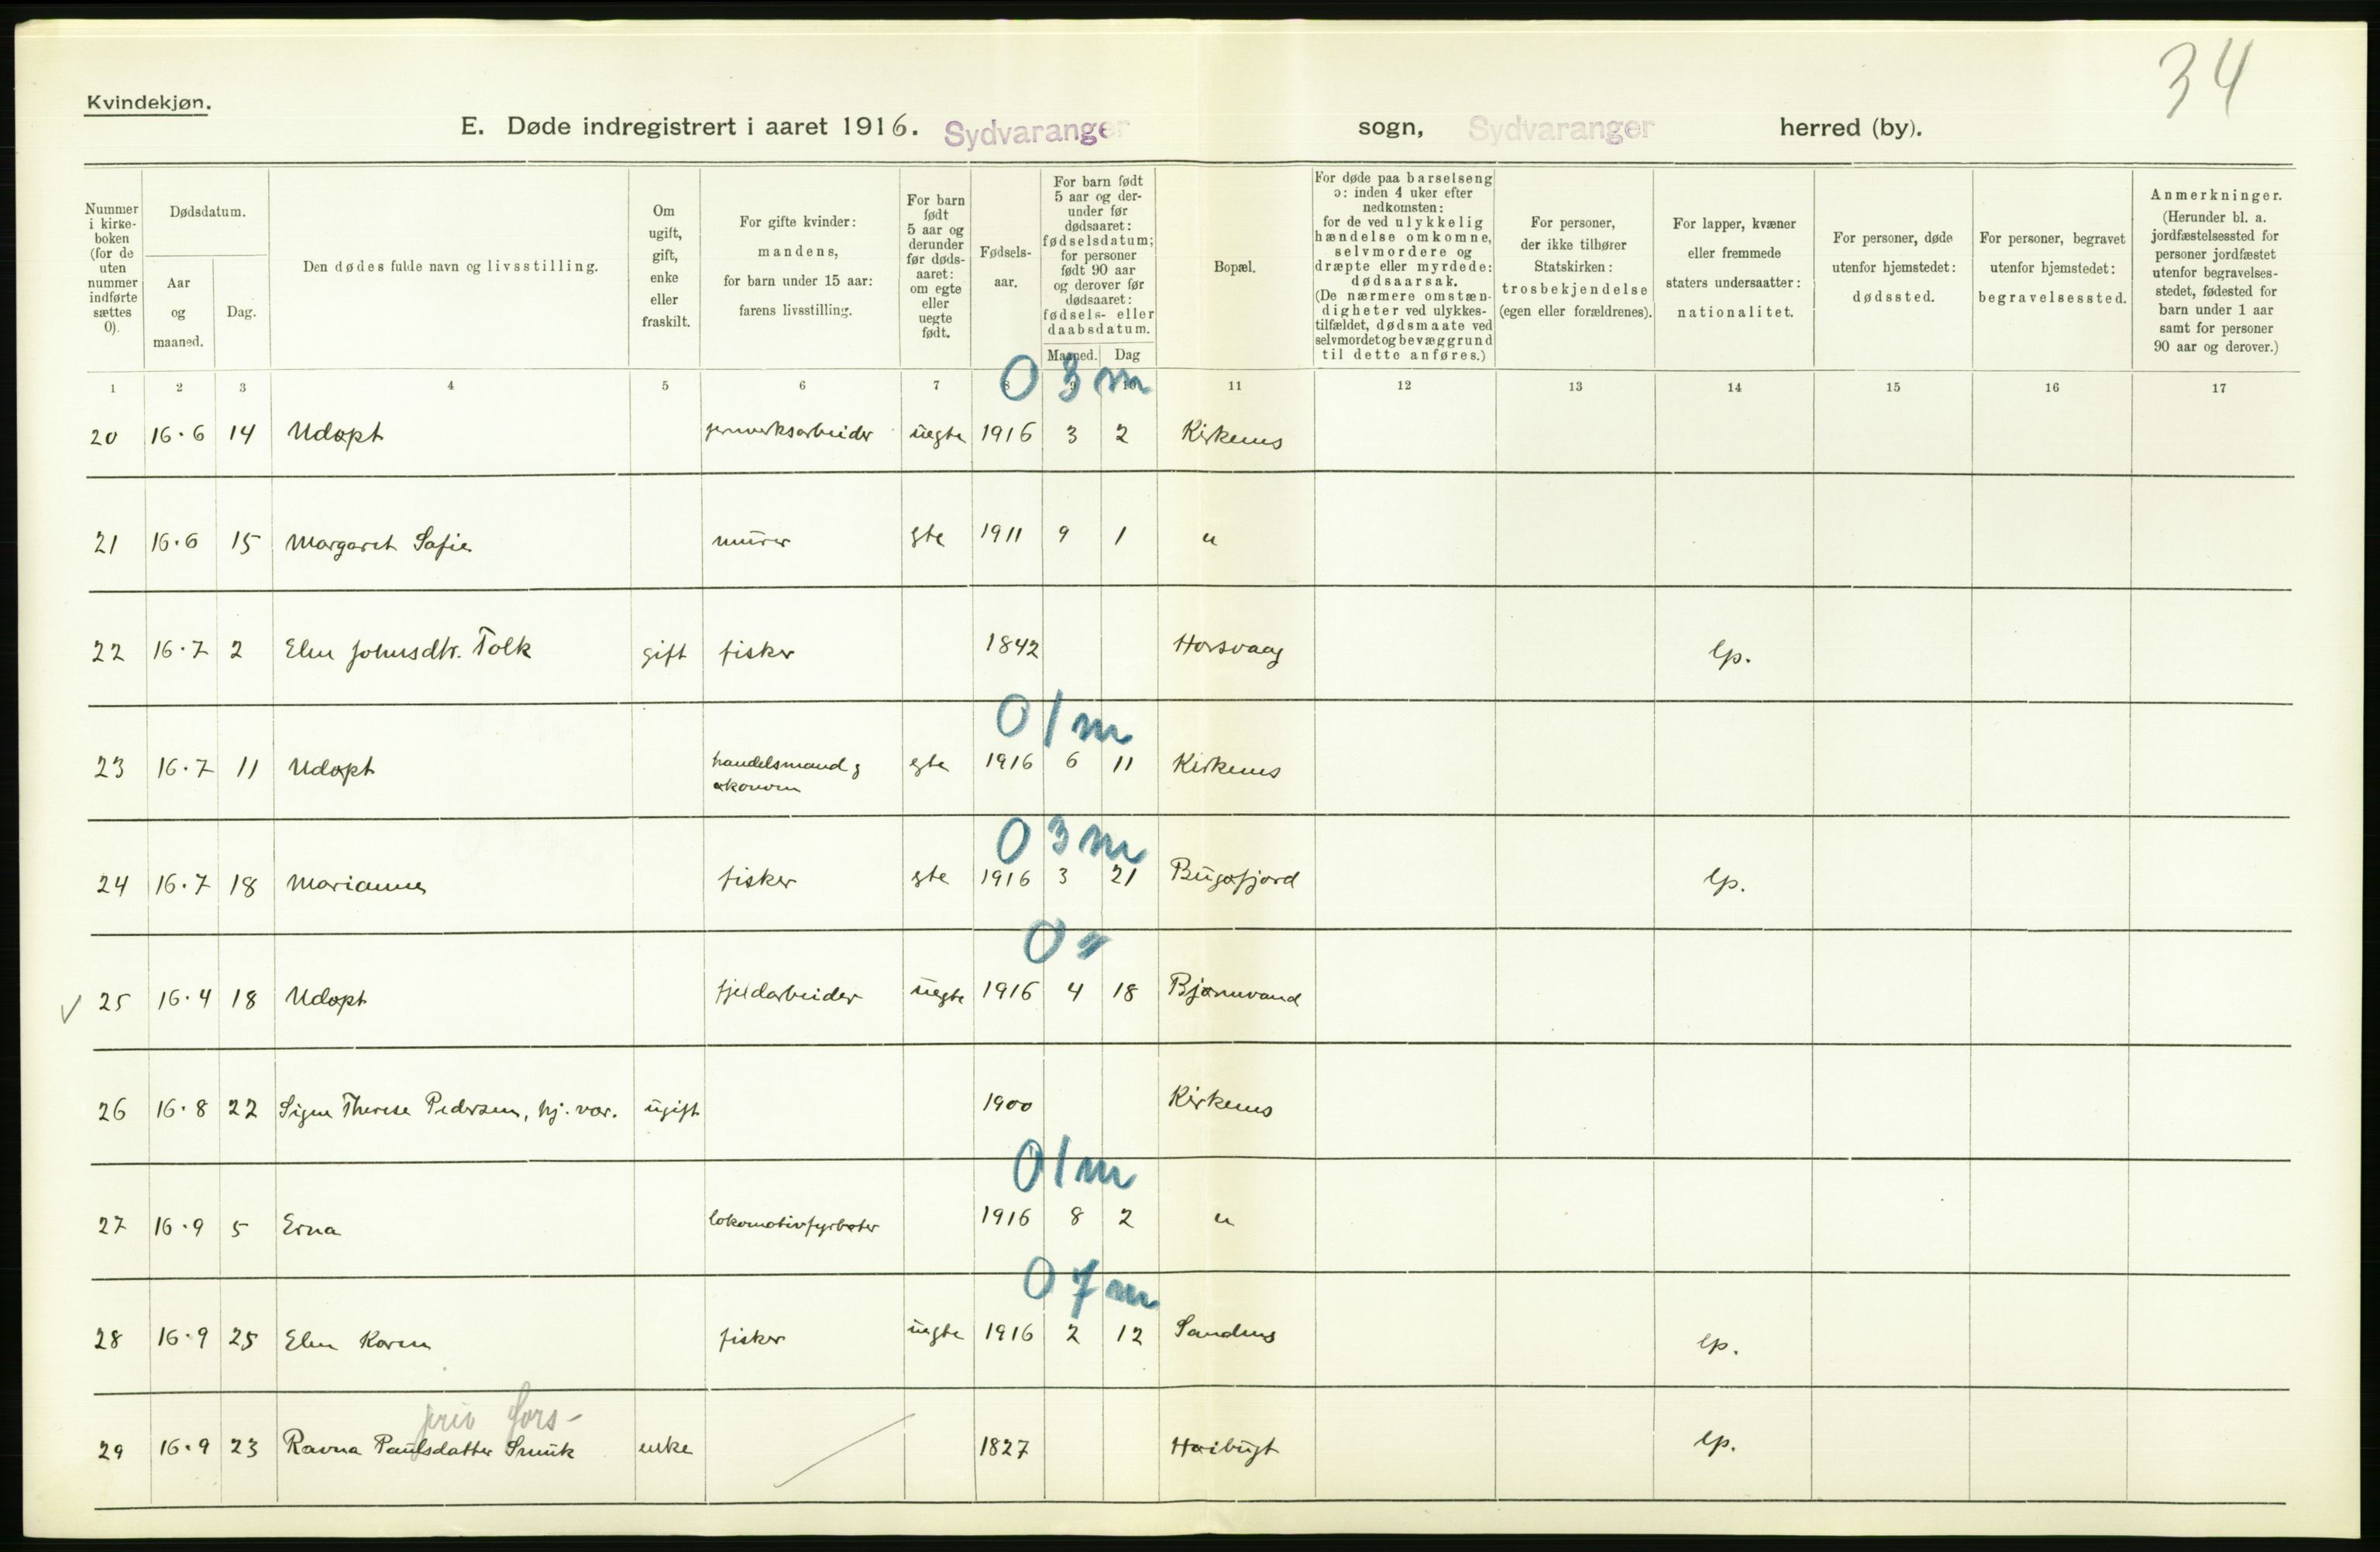 34
Kvindekjøn.
E. Døde indregistrert i aaret 1916. Sydvaranger sogn, Sydvaranger herred (by).
Nummer i kirke-boken (for de uten nummer indførte sættes 0).
Dødsdatum.
Aar og maaned.
Dag.
Den dødes fulde navn og livsstilling.
Om ugift, gift, enke eller fraskilt.
For gifte kvinder: mandens, for barn under 15 aar: farens livsstilling.
For barn født 5 aar og derunder før døds-aaret: om egte eller uegte født.
Fødsels-aar.
For barn født 5 aar og der-under før dødsaaret: fødselsdatum; for personer født 90 aar og derover før dødsaaret: fødsels- eller daabsdatum.
Maaned. Dag
Bopæl.
For døde paa barselseng ɔ: inden 4 uker efter nedkomsten: for de ved ulykkelig hændelse omkomne, selvmordere og dræpte eller myrdede: dødsaarsak. (De nærmere omstæn-digheter ved ulykkes-tilfældet, dødsmaate ved selvmordet og bevæggrund til dette anføres.)
For personer, der ikke tilhører Statskirken: trosbekjendelse (egen eller forældrenes).
For lapper, kvæner eller fremmede staters undersaatter: nationalitet.
For personer, døde utenfor hjemstedet: dødssted.
For personer, begravet utenfor hjemstedet: begravelsessted.
Anmerkninger. (Herunder bl. a. jordfæstelsessted for personer jordfæstet utenfor begravelses-stedet, fødested for barn under 1 aar samt for personer 90 aar og derover.)
1 2 3 4 5 6 7 8 9 10 11 12 13 14 15 16 17
0 3 m
20 16.6 14 Udøpt jernverksarbeider uegte 1916 3 2 Kirkenes
21 16.6 15 Margaret Sofie murer egte 1911 9 1 "
22 16.7 2 Elen Johnsdtr. Tolk gift fisker 1842 Horsvaag lp.
0 1 m
23 16.7 11 Udøpt handelsmand & økonom egte 1916 6 11 Kirkenes
0 3 m
24 16.7 18 Marianne fisker egte 1916 3 21 Bugøfjord lp.
0
25 16.4 18 Udøpt fjeldarbeider uegte 1916 4 18 Bjørnevand
26 16.8 22 Signe Therese Pedersen, hj. vær. ugift 1900 Kirkenes
0 1 m
27 16.9 5 Erna lokomotivfyrbøter 1916 8 2 "
0 7 m
28 16.9 25 Elen Karen fisker uegte 1916 2 12 Sandnes lp.
priv fors-
29 16.9 23 Ravna Paulsdatter Smuk enke 1827 Høibugt lp.